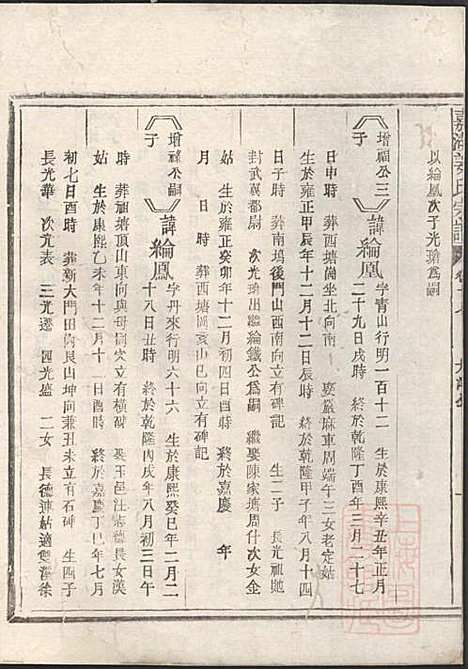 以綸鳳次子光瑜爲嗣
增福公三子
諱綸鳳
字青山行明一百十二 生於康熙辛丑年正月
二十九日戌時 終於乾隆丁酉年三月二十七
日申時 葬西塘崗坐北向南 娶嚴麻車周端午三女老定姑
生於雍正甲辰年十二月十二日辰時 終於乾隆甲子年八月十四
日子時 葬南塢後門山西南向立有碑記 生二子 長光祖貤
封武義都尉 次光瑜出繼綸鐵公爲嗣 繼娶陳家塘周什次女金
姑 生於雍正癸卯年十二月初四日酉時 終於嘉慶 年
月 日 時 葬西塘 亥山巳向立有碑記
增福公嗣子
諱綸鳳
字丹來行明六十六 生於康熙癸巳年二月二
十八日丑時 終於乾隆丙戌年八月初三日午
時 葬祖塘頂山東向與母同穴立有橫碑 娶王邑汪 德長女漢
姑 生於康熙乙未年十二月十一日酉時 終於嘉慶丁巳年七月
初七日酉時 葬新大門田 艮山坤向兼丑未立有石碑 生四子
長光華 次光表 三光遷 四光盛 二女 長德連姑適雙溜徐